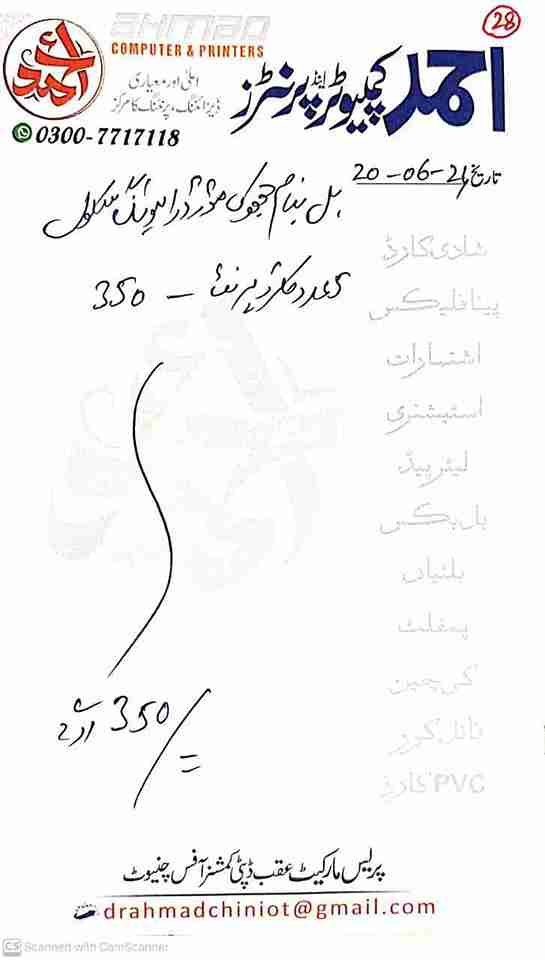 28
AHMAD
COMPUTER & PRINTERS
احمد
احمد کمپیوٹر اینڈ پرنٹرز
اعلیٰ اور معیاری
ڈیزائننگ، پرنٹنگ کا مرکز
0300-7717118
تاریخ 20-06-21
بل بنام موٹر ڈرائیونگ سکول
عدد کلر پرنٹ - 350
شادی کارڈ
پینا فلیکس
اشتہارات
اسٹیشنری
لیٹر پیڈ
بل بکس
بلٹیاں
پمفلٹ
کی چین
فائل کور
PVC کارڈ
350/=
پریس مارکیٹ عقب ڈپٹی کمشنر آفس چنیوٹ
drahmadchiniot@gmail.com
CS Scanned with CamScanner